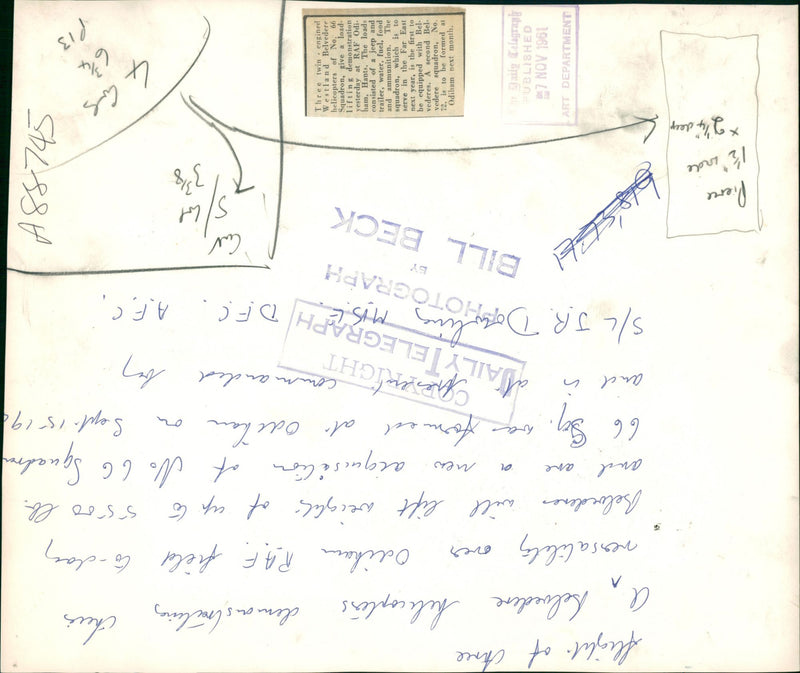 Three twin-engined
Westland Belvedere
helicopters of No. 66
Squadron, give a load-
lifting demonstration
yesterday at RAF Odi-
ham, Hants. The loads
consisted of a jeep and
trailer, water, fuel, food
and ammunition. The
squadron, which is to
serve in the Far East
next year, is the first to
be equipped with Bel-
vederes. A second Bel-
vedere squadron, No.
72, is to be formed at
Odiham next month.
Daily Telegraph
PUBLISHED
7 NOV 1961
ART DEPARTMENT
4 Cols
6 3/4
P13
A88745
Cut
S/
3 3/8
Piece
1 1/2" wide
x 2 1/4" deep
flight of three
A ^ Belvedere helicopters demonstrating their
versatility over Odiham R.A.F. field to-day
Belvederes will lift weights of up to 5500 lb.
and are a new acquisition of No 66 Squadron
66 Sq. was formed at Odiham on Sept. 15-19
and is at present commanded by
S/L J.R. Dowling M.B.E. D.F.C. A.F.C.
COPYRIGHT
DAILY TELEGRAPH
PHOTOGRAPH
BY
BILL BECK